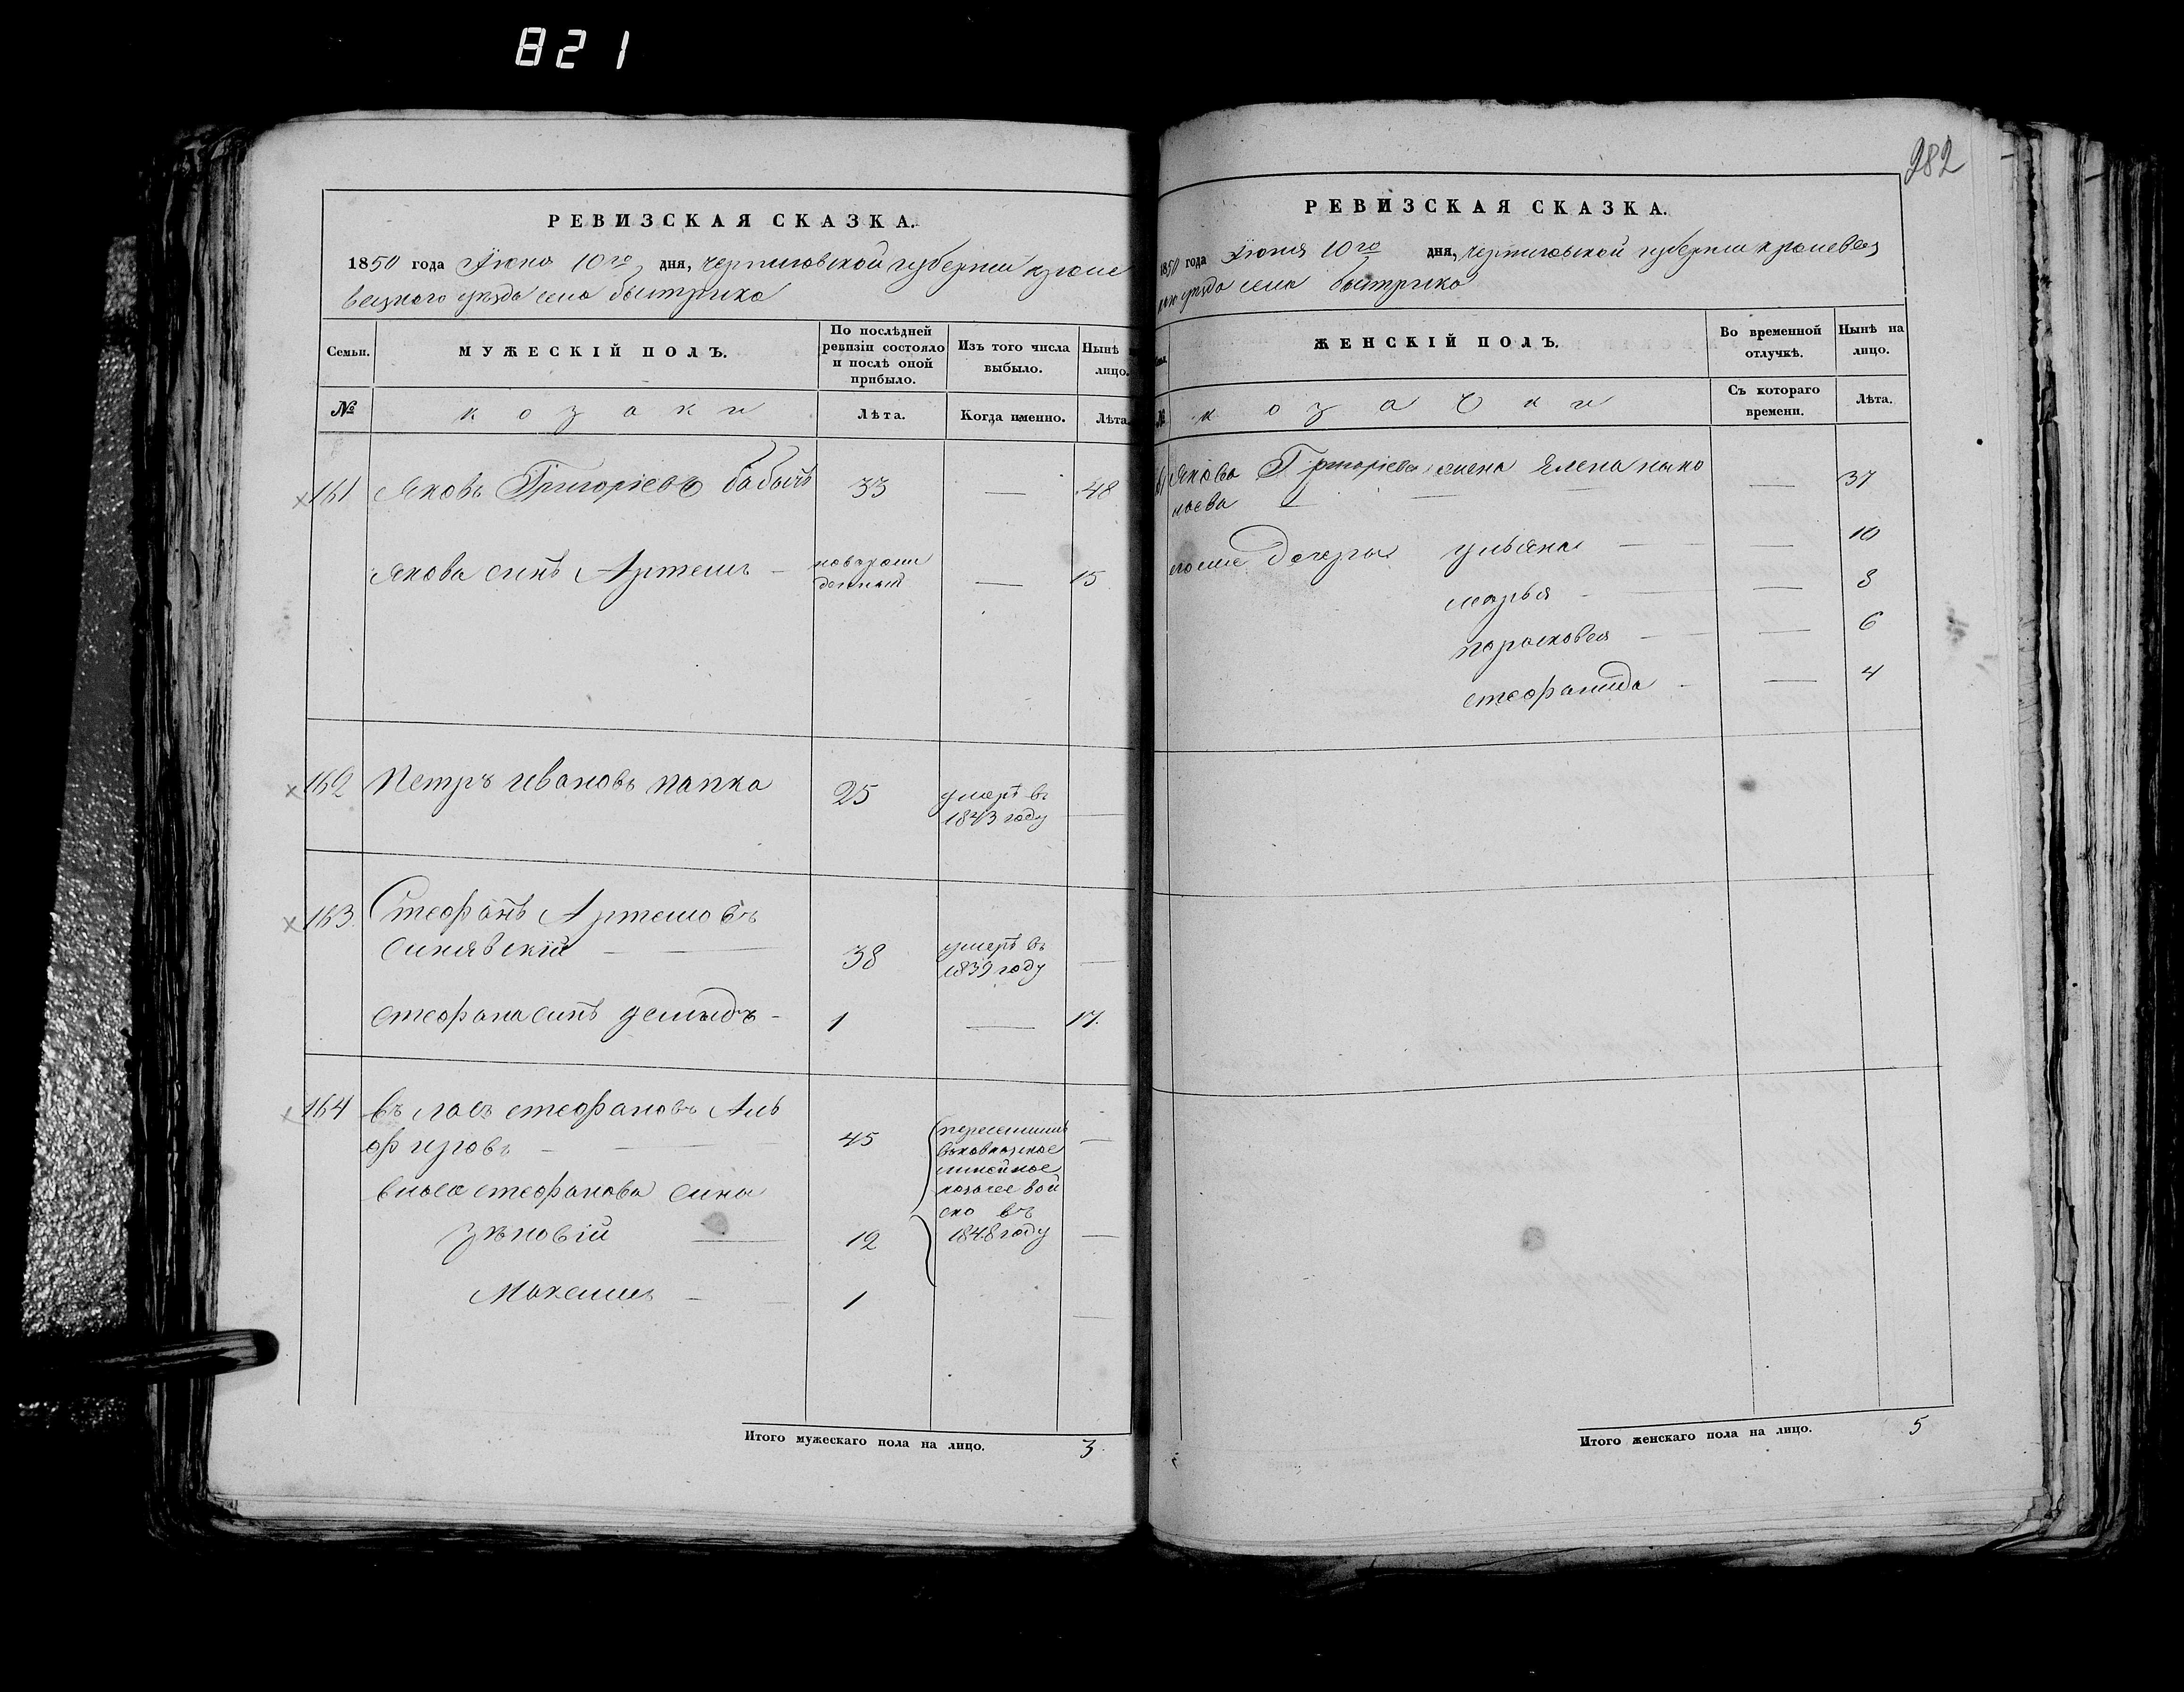 821
РЕВИЗСКАЯ СКАЗКА.
1850 года Июня 10го дня, черниговской губернии кроле
вецкого уезда села быстрика
Семьи.
МУЖЕСКІЙ ПОЛЪ.
По послѣдней
ревизіи состояло
и послѣ оной
прибыло.
Изъ того числа
выбыло.
Нынѣ
лицо.
№
козаки
Лѣта.
Когда именно.
Лѣта.
161 Яковъ Григоріевъ бабычъ 33 — 48
Якова синъ Артемъ — новорож
денный — 15
162 Петръ ивановъ папка 25 умеръ въ
1843 году —
163 Стефанъ Артемовъ
синявскій — 38 умеръ въ
1839 году —
стефана синъ демидъ - 1 — 17.
164 въласъ стефановъ Аль
фировъ — 45 переселились
въкавказкое
линейное
козачее вой
ско въ
1848 году —
власа стефанова сины
зѣновій — 12 —
Максимъ — 1 —
Итого мужескаго пола на лицо. 3
282
РЕВИЗСКАЯ СКАЗКА.
1850 года Июня 10го дня, черниговской губернии кролевец
уезда села быстрика
ЖЕНСКІЙ ПОЛЪ.
Во временной
отлучкѣ.
Нынѣ на
лицо.
№
козачки
Съ котораго
времени.
Лѣта.
Якова Григоріева жена Елена нико
лаева — 37
его же дочеры ульяна — 10
марья — 8
парасковея — 6
стефанида — 4
Итого женскаго пола на лицо. 5